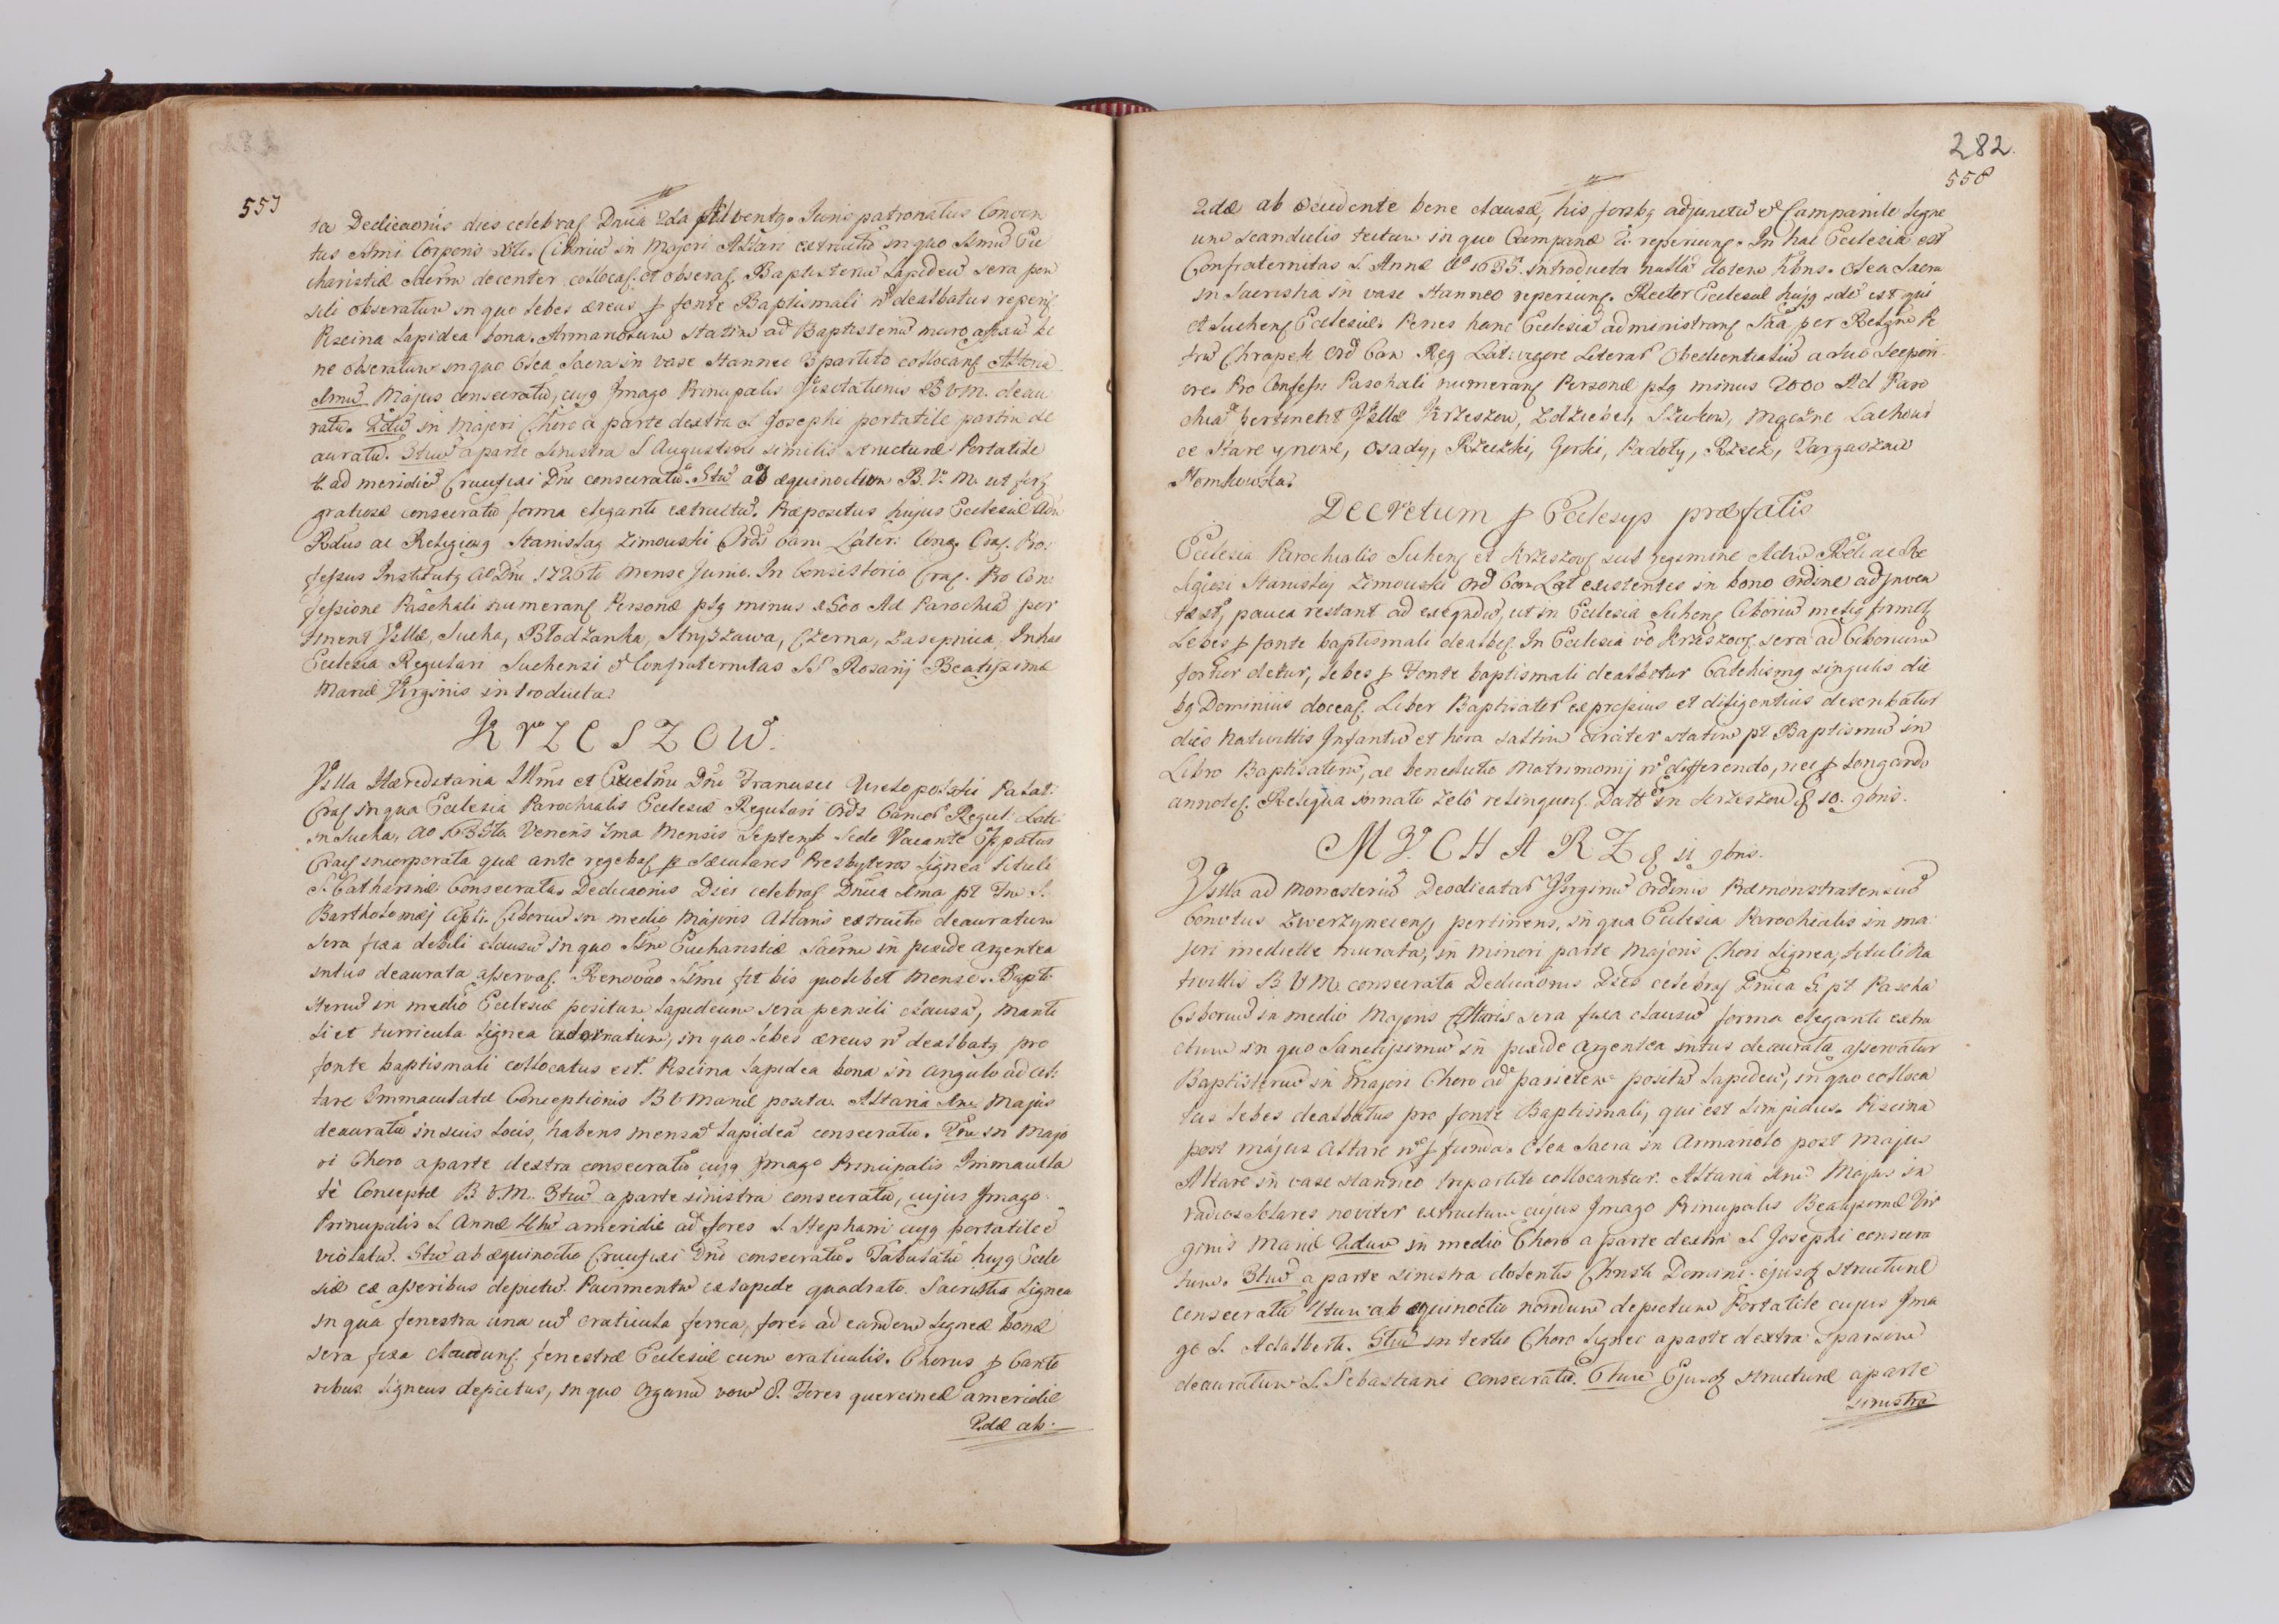 557
ta Dedicaonis dies celebrat Dnica 2da Adventq. Jurispatronatus Conven
tus Smi Corporis Xti. Ciboriu in Majori Altari extructu in quo Ssmu Eu
charistiæ Sacrm decenter collocat. et obserat. Baptisteriu Lapideu sera pen
sili obseratum in quo Lebes æreus p fonte Baptismali n dealbatus reperit
Piscina Lapidea bona. Armariolum statim ad Baptisteriu muro affixu be
ne obseratum in quo Olea Sacra in vase stanneo 3partito collocant Altaria
Imu Majus consecratu, cujq Imago Principalis Visitationis B V M. deau
ratu. 2du in Majori Choro a parte dextra S Josephi portatile partim de
auratu. 3tiu a parte sinistra S Augustini similis structuræ Portatile
4. ad meridie Crucifixi Dni consecratu. 5tu ad æquinoctium B. V. M. ut fert
gratiosæ consecratu forma eleganti extructu. Præpositus hujus Ecclesiæ Adm
Rdus ac Religiosq Stanislaq Zimowski Ords Can: Later: Cong. Crac. Pro.
fessus Institutq A Dni 1726to Mense Junio. In Consistorio Crac. Pro Con
fessione Paschali numerant Personæ plq minus 2500 Ad Parochia per
tinent Villæ, Sucha, Błodzanka, Stryszawa, Czerna, Zasepnica, In hac
Ecclesia Regulari Suchensi e Confraternitas SS Rosarij Beatissimæ
Mariæ Virginis introducta.
KRZESZOW.
Villa Hæreditaria Illmi et Excelmi Dni Francisci Wielopolski Palat:
Crac in qua Ecclesia Parochialis Ecclesiæ Regulari Ords Canor Regul: Late
in Sucha, Ao 1635to Veneris 7ma Mensis Septemb Sede Vacante Eppatus
Crac incorporata quæ ante regebat p Sæculares Presbyteros Lignea tituli
S. Catharinæ Consecrata. Dedicaonis Dies celebrat Dnica Ima pt Fm S.
Bartholomæj Apli. Ciboriu in medio Majoris Altaris extructu deauratum
sera fixa debili clausu in quo Ssm Eucharistiæ Sacrm in pixide argentea
intus deaurata asservat. Renovao Ssmi fit bis quolibet Mense. Bapti
steriu in medio Ecclesiæ positum Lapideum sera pensili clausu, mante
li et turricula lignea adornatum, in quo lebes æreus n dealbatq pro
fonte baptismali collocatus est. Piscina Lapidea bona in angulo ad Al:
tare Immaculatæ Conceptionis B V Mariæ posita. Altaria Imu Majus
deauratu in suis locis, habens mensa lapidea consecratu. 2du in Majo
ri Choro a parte dextra consecratu cujq Imago Principalis Immacula
tè Conceptæ B V. M. 3tiu a parte sinistra consecratu, cujus Imago
Principalis S Annæ 4tu a meridie ad fores S. Stephani cujq portatile e
violatu. 5tu ab æquinoctio Crucifixi Dni consecratu. Tabulatu hujq Eccle
siæ ex asseribus depictu. Pavimentu ex lapide quadrato. Sacristia Lignea
in qua fenestra una cu craticula ferrea, fores ad eandem ligneæ bonæ
sera fixa claudunt. fenestræ Ecclesiæ cum craticulis. Chorus p Canto
ribus ligneus depictus, in quo Organu vocu 8. Fores querceneæ a meridie
2dæ ab.
282.
558
2dæ ab occidente bene clausæ, his foribq adjunctu e Campanile ligne
um scandulis tectum in quo Campanæ 2 reperiunt. In hac Ecclesia est
Confraternitas S Annæ Ao 1635. introducta nulla dotem hbns. Olea Sacra
in Sacristia in vase stanneo reperiunt. Rector Ecclesiæ hujq ide est qui
et Suchens Ecclesiæ. Penes hanc Ecclesia administrant Saa per Relgm Pe
tru Chrapek Ord Can Reg Lat: vigore Literar Obedientialiu a suo Superi
ore. Pro Confess: Paschali numerant Personæ plq minus 2000 Ad Paro
chia pertinent Villæ Krzeszow, Zdziebel, Szuków, Mączne Lachowi
ce stare y nowe, Osady, Rzeczki, Gorki, Padoły, Rzecz, Targaszow
Stomkowska.
Decretum p Ecclesijs præfatis
Ecclesia Parochialis Suchens et Krzeszovs sub regimine Adm Rdi ac Re
ligiosi Stanislaj Zimowski Ord Can Lat existentes in bono ordine adinven
tæ st, pauca restant ad exeqndu, ut in Ecclesia Suchens Ciboriu meliq firmet
Lebes p fonte baptismali dealbet. In Ecclesia vo Krzeszovs. sera ad Ciborium
fortior detur, lebes p Fonte baptismali dealbetur Catehismq singulis die
bq Dominicis doceat. Liber Baptisator expressius et diligentius describatur
dies Nativittis Infantiu et hora saltim circiter statim pt Baptismu in
Libro Baptisator, ac benedictio Matrimonij n differendo, nec p longando
annotet. Reliqua innato zelo relinquunt. Datt in Krzeszow d 10. 9bris.
MVCHARZ d 11 9bris.
Villa ad Monasteriu Deodicatar Virginu Ordinis Præmonstratensiu
Convtus Zwerzyneciens pertinens, in qua Ecclesia Parochialis in ma
jori medietate murata, in minori parte Majoris Chori lignea, tituli Na
tivittis B V M. consecrata Dedicaonis Dies celebrat Dnica 5 pt Pascha
Ciboriu in medio Majoris Altaris sera fixa clausu forma eleganti extru
ctum in quo Sanctissimu in pixide argentea intus deaurata asservatur
Baptisteriu in Majori Choro ad parietem positu lapideu, in quo colloca
tus lebes dealbatus pro fonte Baptismali, qui est limpidus. Piscina
post majus Altare n p funda. Olea Sacra in Armariolo post Majus
Altare in vase stanneo tripartito collocantur. Altaria Imu Majus in
radios Solares noviter extructum cujus Imago Principalis Beatissimæ Vir
ginis Mariæ 2dum in medio Choro a parte dextra S Josephi consecra
tum. 3tiu a parte sinistra dolentis Christi Domini ejusd structuræ
consecratu 4tum ab æquinoctio nondum depictum Portatile cujus Ima
go S. Adalberti. 5tu in tertio Choro ligneo a parte dextra sparsim
deauratum S. Sebastiani consecratu. 6tum Ejusd structuræ a parte
sinistra